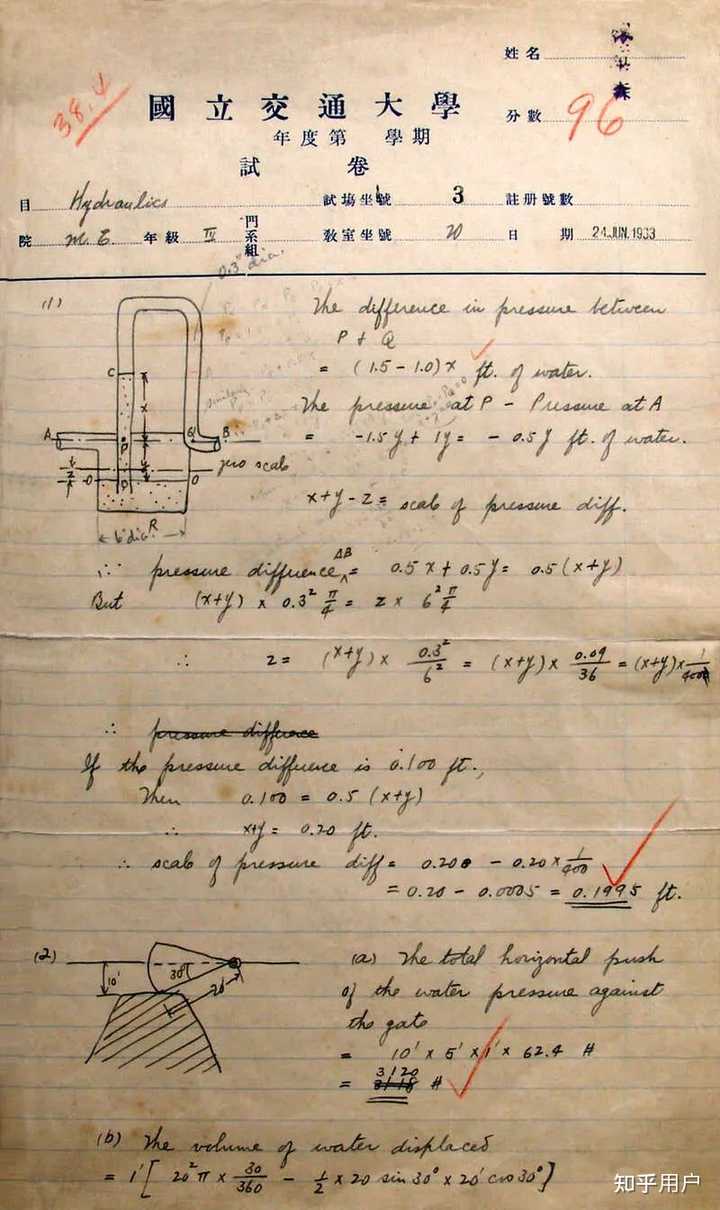 姓名
38.4
國立交通大學
分數 96
年度第 學期
試卷
目 Hydraulics 試場坐號 3 註册號數
院 M.E. 年級 IV 門系組 教室坐號 20 日期 24 JUN. 1933
0.3" dia.
(1) The difference in pressure between
P & Q
= (1.5 - 1.0) x ft. of water.
C
x
The pressure at P - Pressure at A
A P Q B
= -1.5 y + 1y = - 0.5 y ft. of water.
zero scale
z y
O D O
x+y-z = scale of pressure diff.
6" dia. R
∴ pressure diffrence AB = 0.5 x + 0.5 y = 0.5 (x+y)
But (x+y) × 0.3² π/4 = z × 6² π/4
∴ z = (x+y) × 0.3²/6² = (x+y) × 0.09/36 = (x+y) × 1/400
∴ pressure difference
If the pressure difference is 0.100 ft.,
Then 0.100 = 0.5 (x+y)
∴ x+y = 0.20 ft.
∴ scale of pressure diff = 0.200 - 0.20 × 1/400
= 0.20 - 0.0005 = 0.1995 ft.
(2) (a) The total horizontal push
10' 30° 20'
of the water pressure against
the gate
= 10' × 5' × 1' × 62.4 #
= 3120 #
(b) The volume of water displaced
= 1' [ 20² π × 30/360 - 1/2 × 20 sin 30° × 20' cos 30° ]
知乎用户